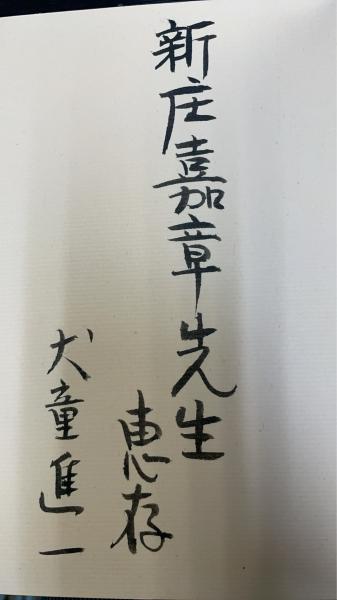 新庄嘉章先生
恵存
犬童進一